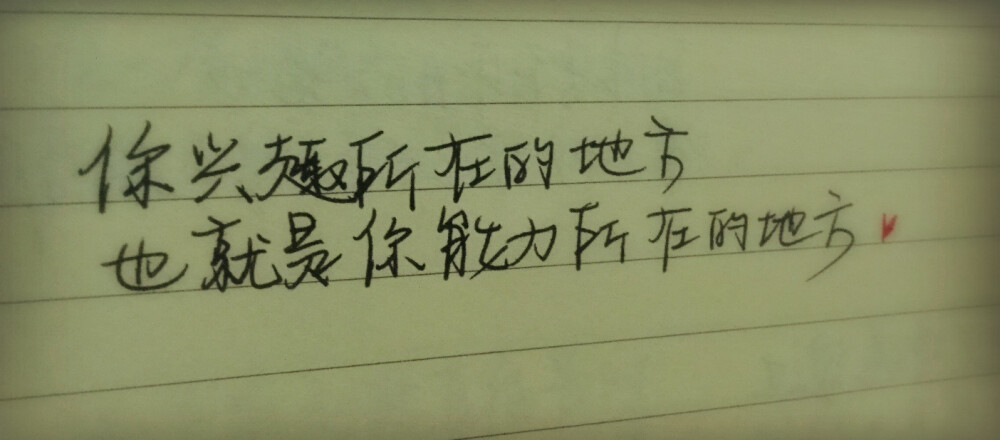 你兴趣所在的地方
也就是你能力所在的地方